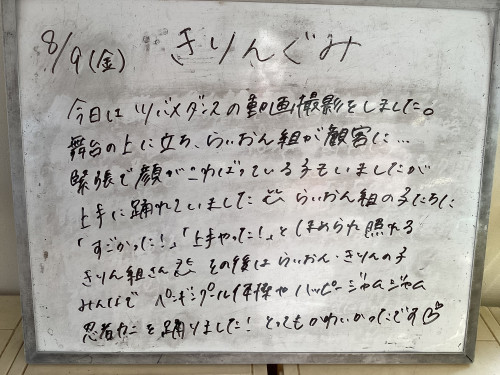 8/9(金) きりんぐみ
今日は ツバメダンスの動画撮影をしました。
舞台の上に立ち、らいおん組が観客に…
緊張で顔がこわばっている子もいましたが
上手に踊れていました らいおん組の子たちに
「すごかった!」「上手やった!」とほめられ照れる
きりん組さん その後は らいおん・きりんの子
みんなで ペンギンプール体操や ハッピージャムジャム
忍者カニを踊りました! とってもかわいかったです